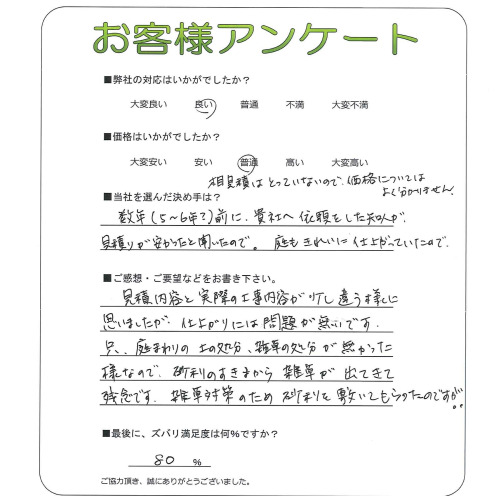 お客様アンケート
■弊社の対応はいかがでしたか?
大変良い 良い 普通 不満 大変不満
■価格はいかがでしたか?
大変安い 安い 普通 高い 大変高い
相見積はとっていないので、価格については
よく分かりません!
■当社を選んだ決め手は?
数年(5~6年?)前に、貴社へ依頼をした知人が、
見積りが安かったと聞いたので。庭もきれいに仕上がっていたので。
■ご感想・ご要望などをお書き下さい。
見積内容と実際の工事内容が少し違う様に
思いましたが、仕上がりには問題が無いです。
只、庭まわりの土の処分、雑草の処分が無かった
様なので、砂利のすきまから雑草が出てきて
残念です。雑草対策のため砂利を敷いてもらったのですが!!
■最後に、ズバリ満足度は何%ですか?
80 %
ご協力頂き、誠にありがとうございました。